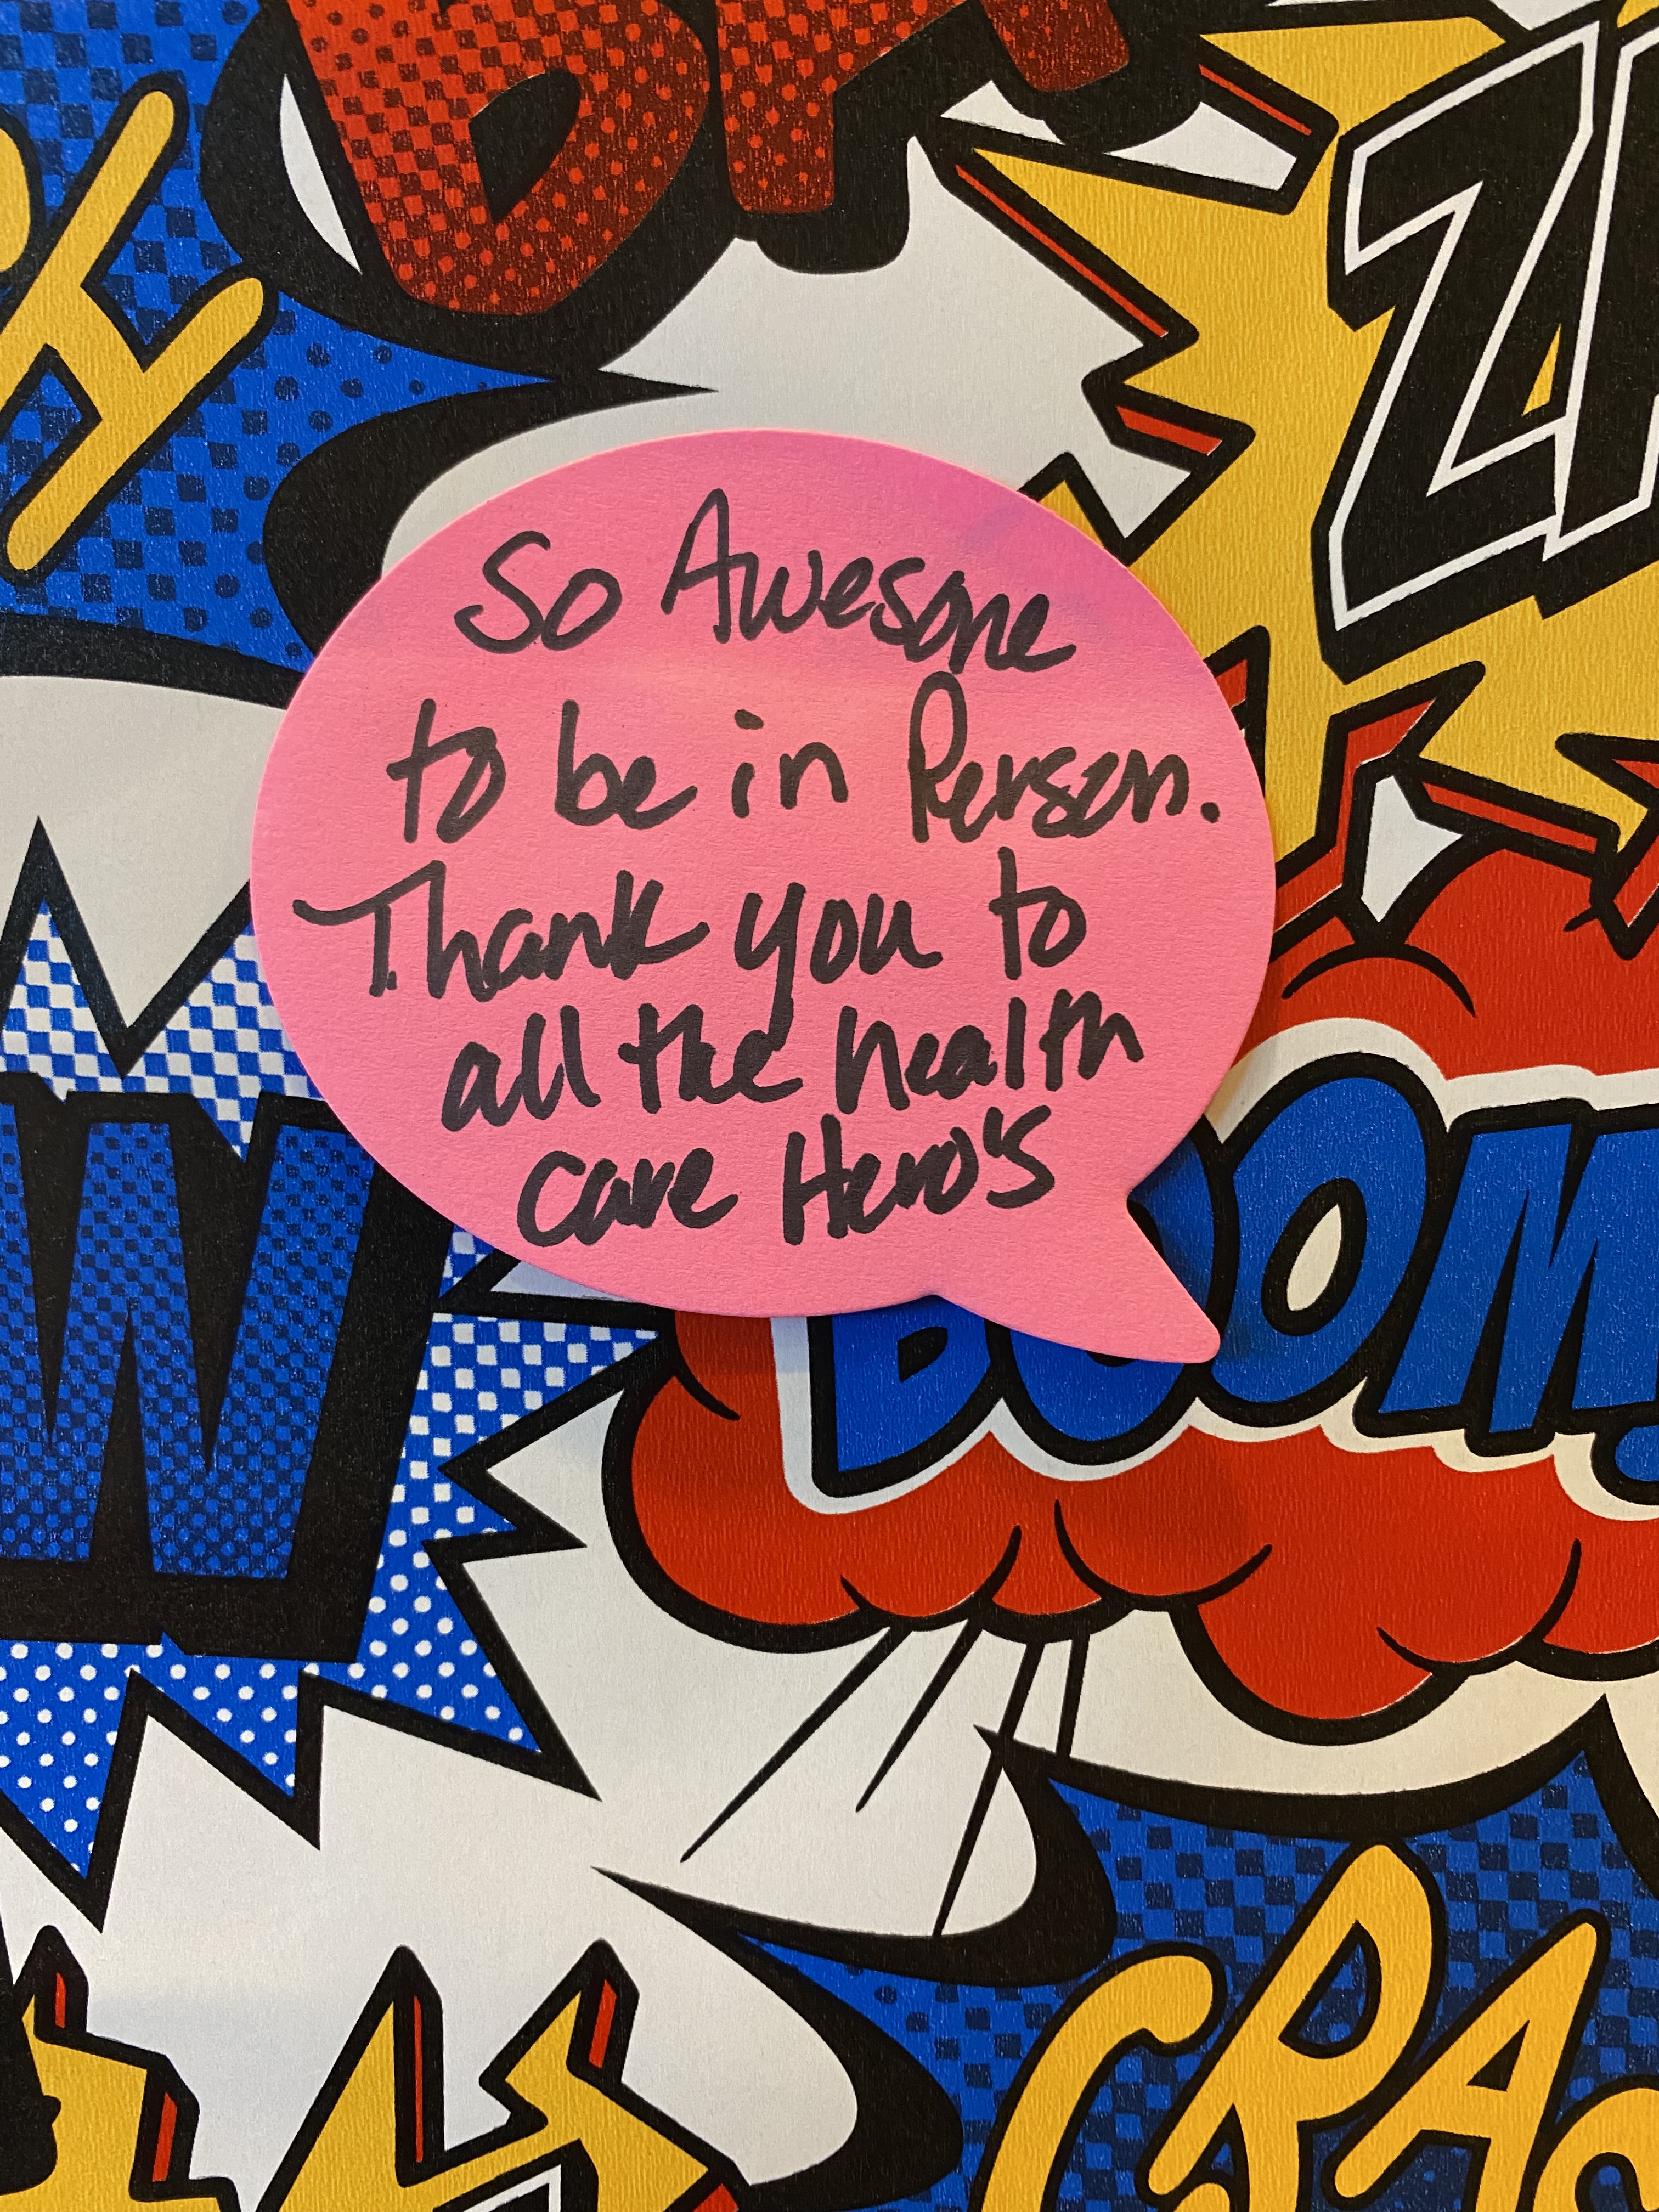 ZA
So Awesome
to be in Person.
Thank you to
all the health
care Hero's
W
BOOM!
CRAS